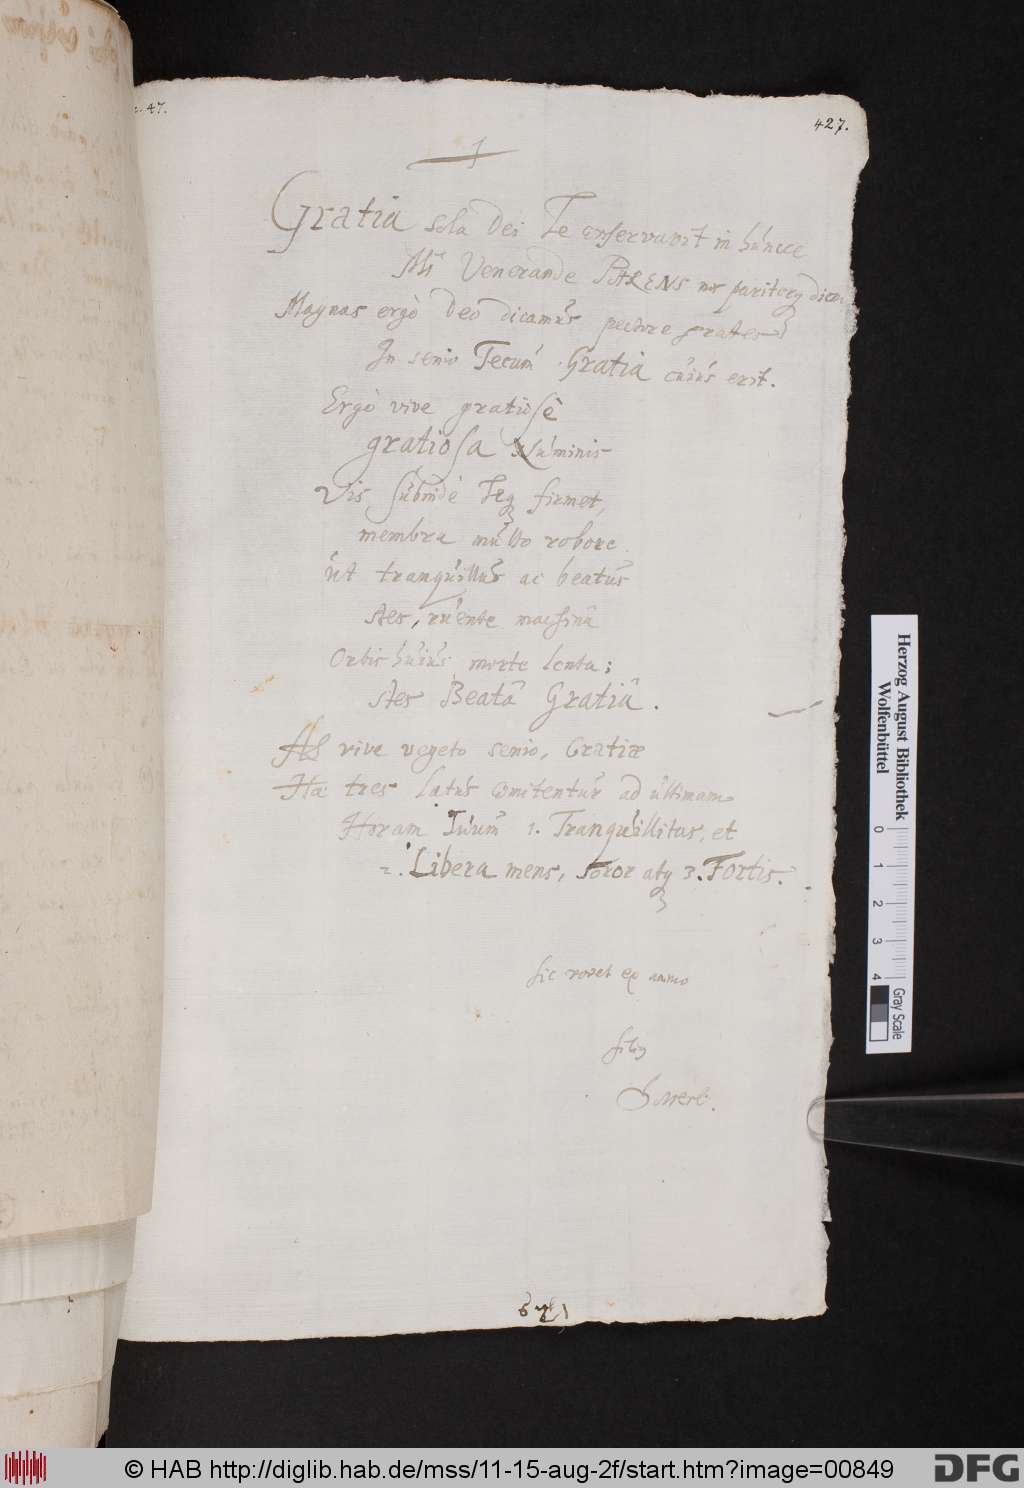 47.
427.
Gratia sola Dei Te conservavit in huncce
Mi Venerande PARENS nos pariterq dicem
Magnas ergò Deo dicamus pectore grates
In senio Tecum Gratia cuius erit.
Ergò vive gratiosè
gratiosa Numinis
Vis subindè Teq firmet,
membra multo robore
ut tranquillus ac beatus
stes, ruente machinâ
Orbis huius morte lenta;
stes Beatâ Gratiâ.
vive vegeto senio, Gratiæ
tres Latus comitentur ad ultimam
Horam Tuum 1. Tranquillitas, et
2. Libera mens, soror atq 3. Fortis.
sic vovet ex animo
filiq
Herzog August Bibliothek
Wolfenbüttel
0 1 2 3 4
Gray Scale
© HAB http://diglib.hab.de/mss/11-15-aug-2f/start.htm?image=00849
DFG